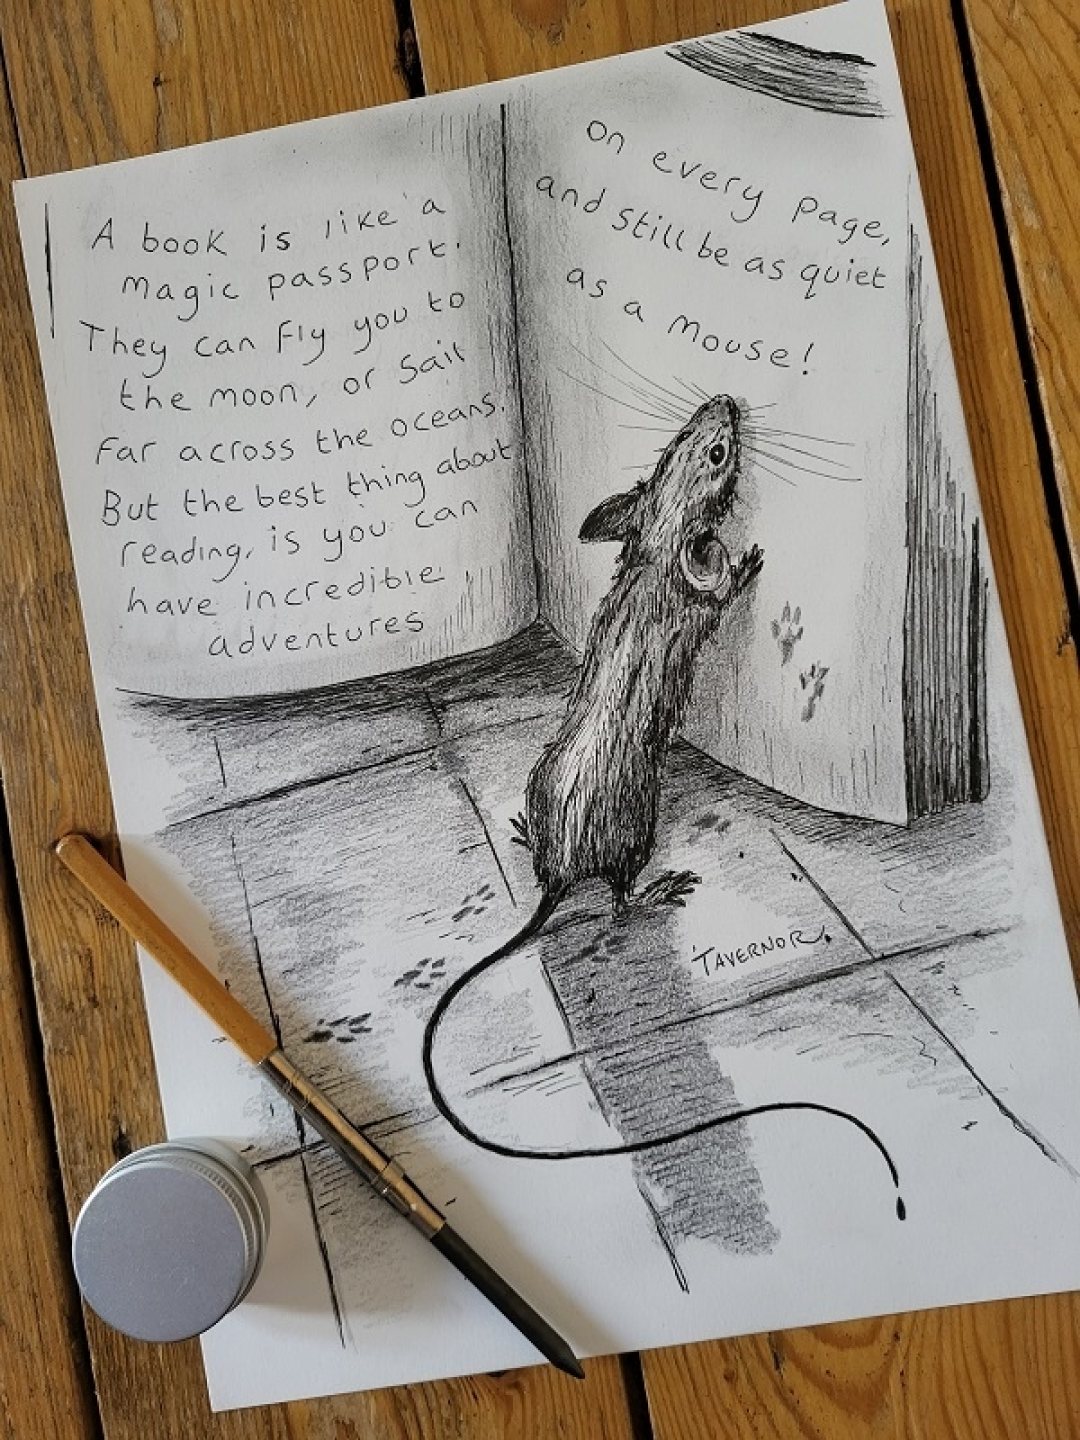 A book is like a
magic passport.
They can fly you to
the moon, or sail
far across the oceans.
But the best thing about
reading, is you can
have incredible
adventures
on every page,
and still be as quiet
as a mouse!
TAVERNOR.